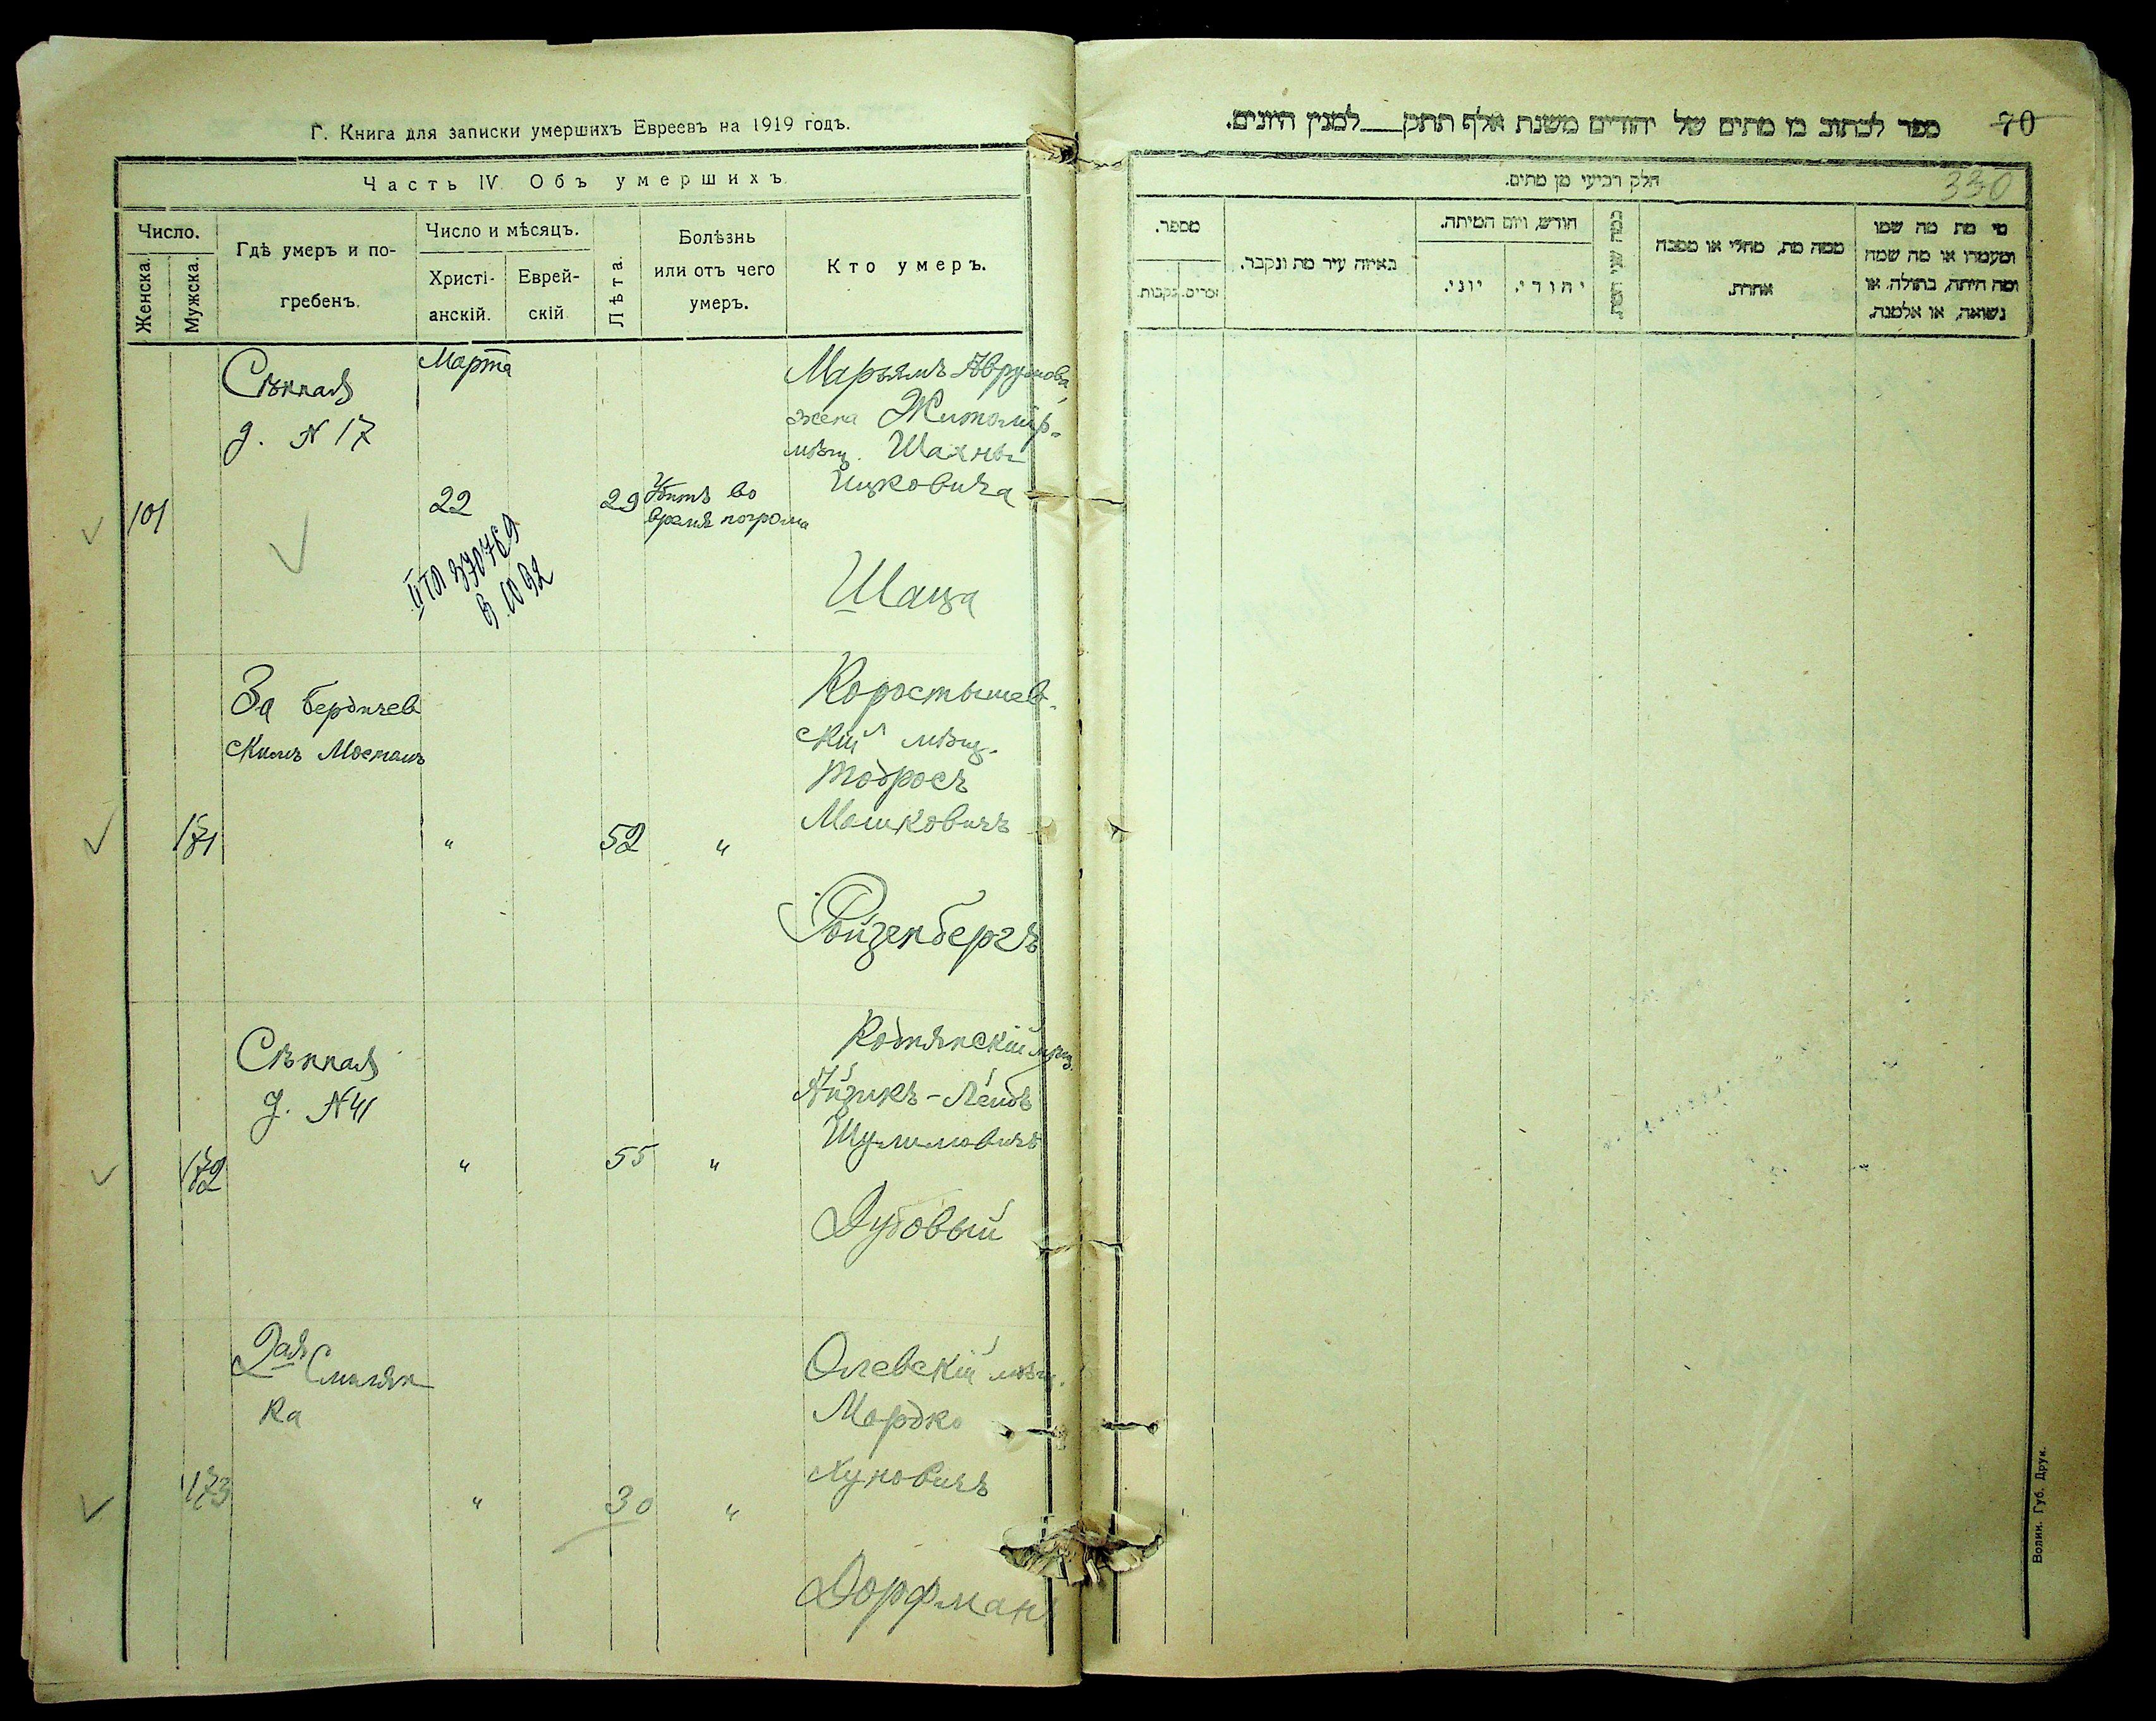 Г. Книга для записки умершихъ Евреевъ на 1919 годъ.
Часть IV. Объ умершихъ
Число.
Женска.
Мужска.
Гдѣ умеръ и по-
гребенъ.
Число и мѣсяцъ.
Христі-
анскій.
Еврей-
скій
Лѣта.
Болѣзнь
или отъ чего
умеръ.
Кто умеръ.
101
Сѣнная
д. № 17
Марта
22
29
Убитъ во
время погрома
Марьямъ Аврумова
жена Житомір.
мѣщ. Шахны
Ицковича
Шаца
370769
171
За Бердичев
скимъ Мостомъ
"
52
"
Коростышев-
скій мѣщ.
Тодросъ
Мошковичъ
Ройзенбергъ
172
Сѣнная
д. №41
"
55
"
Коднянскій мѣщ.
Айзикъ-Лейбъ
Шулимовичъ
Дубовый
173
2ая Смолян
ка
"
30
"
Олевскій мѣщ.
Мордко
Хуновичъ
Дорфман
70
ספר לכתוב בו מתים של יהודים משנת אלף תתק___למנין היונים.
330
חלק רביעי מן מתים.
מספר.
זכרים.
נקבות.
באיזה עיר מת ונקבר.
חודש, ויום המיתה.
יוני.
יהודי.
כמה שני המת.
ממה מת, מחלי או מסבה
אחרת.
מי מת מה שמו
ומעמדו או מה שמה
ומה היתה, בתולה או
נשואה, או אלמנה.
Волин. Губ. Друк.